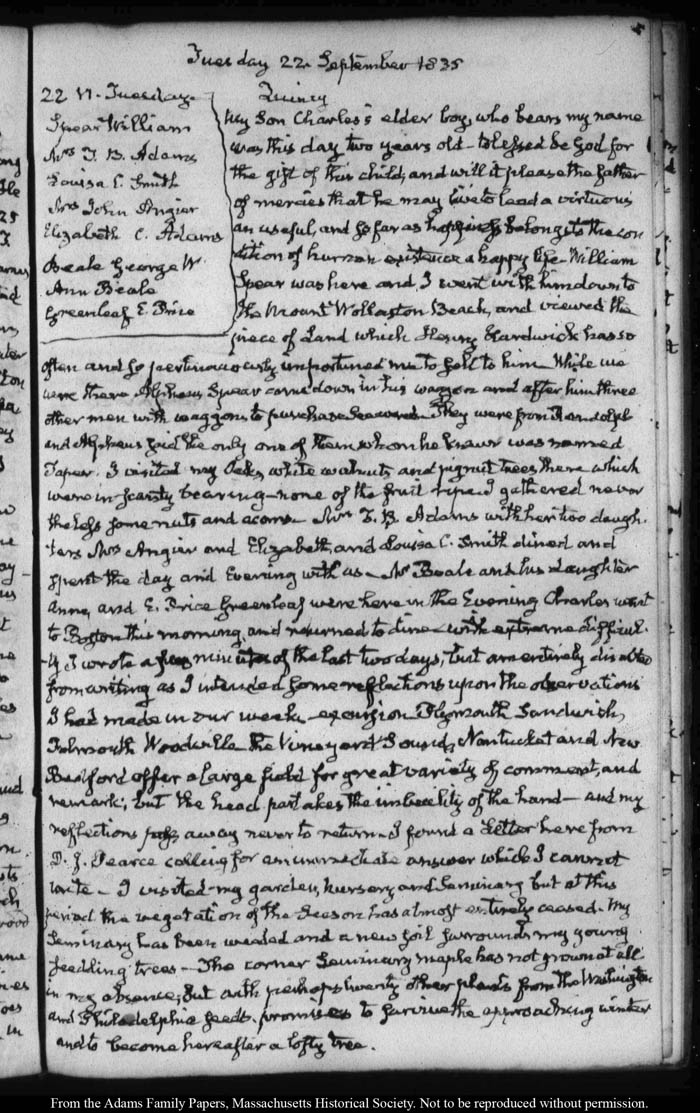 Tuesday 22. September 1835
22. VI. Tuesday.
Spear William
Mrs T. B. Adams
Louisa C. Smith
Mrs John Angier
Elizabeth C. Adams
Beale George W.
Ann Beale
Greenleaf E. Price
Quincy
My Son Charles's elder boy, who bears my name
was this day two years old—blessed be God for
the gift of this child, and will it please the father
of mercies that he may live to lead a virtuous
an useful, and so far as happiness belongs to the con
dition of human existence a happy life. William
Spear was here and I went with him down to
the Mount Wollaston Beach, and viewed the
piece of Land which Henry Hardwick has so
often and so pertinaciously importuned me to sell to him. While we
were there Alpheus Spear came down in his waggon and after him three
other men with waggons to purchase Seaweed. They were from Randolph
and Alpheus said the only one of them whom he knew was named
I visited my Oaks, white walnuts and pignut trees there which
were in scanty bearing—none of the fruit ripe. I gathered never
theless some nuts and acorns. Mrs T. B. Adams with her two daugh
ters Mrs Angier and Elizabeth, and Louisa C. Smith dined and
spent the day and Evening with us. Mr Beale and his Daughter
Anne, and E. Price Greenleaf were here in the Evening Charles went
to Boston this morning, and returned to dine—with extreme difficul
ty I wrote a few minutes of the last two days, but am entirely disabled
from writing as I intended some reflections upon the observations
I had made in our weeks excursion Plymouth Sandwich,
Falmouth Woodville the Vineyard Sound, Nantucket and New
Bedford offer a large field for great variety of comment, and
remark; but the head partakes the imbecility of the hand—and my
reflections pass away never to return. I found a Letter here from
D. J. Pearce calling for an immediate answer which I cannot
write—I visited my garden, nursery and Seminary but at this
period the vegetation of the Season has almost entirely ceased. My
Seminary has been weeded and a new soil surrounds my young
seedling trees—The corner Seminary maple has not grown at all
in my absence; but with perhaps twenty other plants from the Washington
and Philadelphia seeds, promises to survive the approaching winter
and to become hereafter a lofty tree.
From the Adams Family Papers, Massachusetts Historical Society. Not to be reproduced without permission.